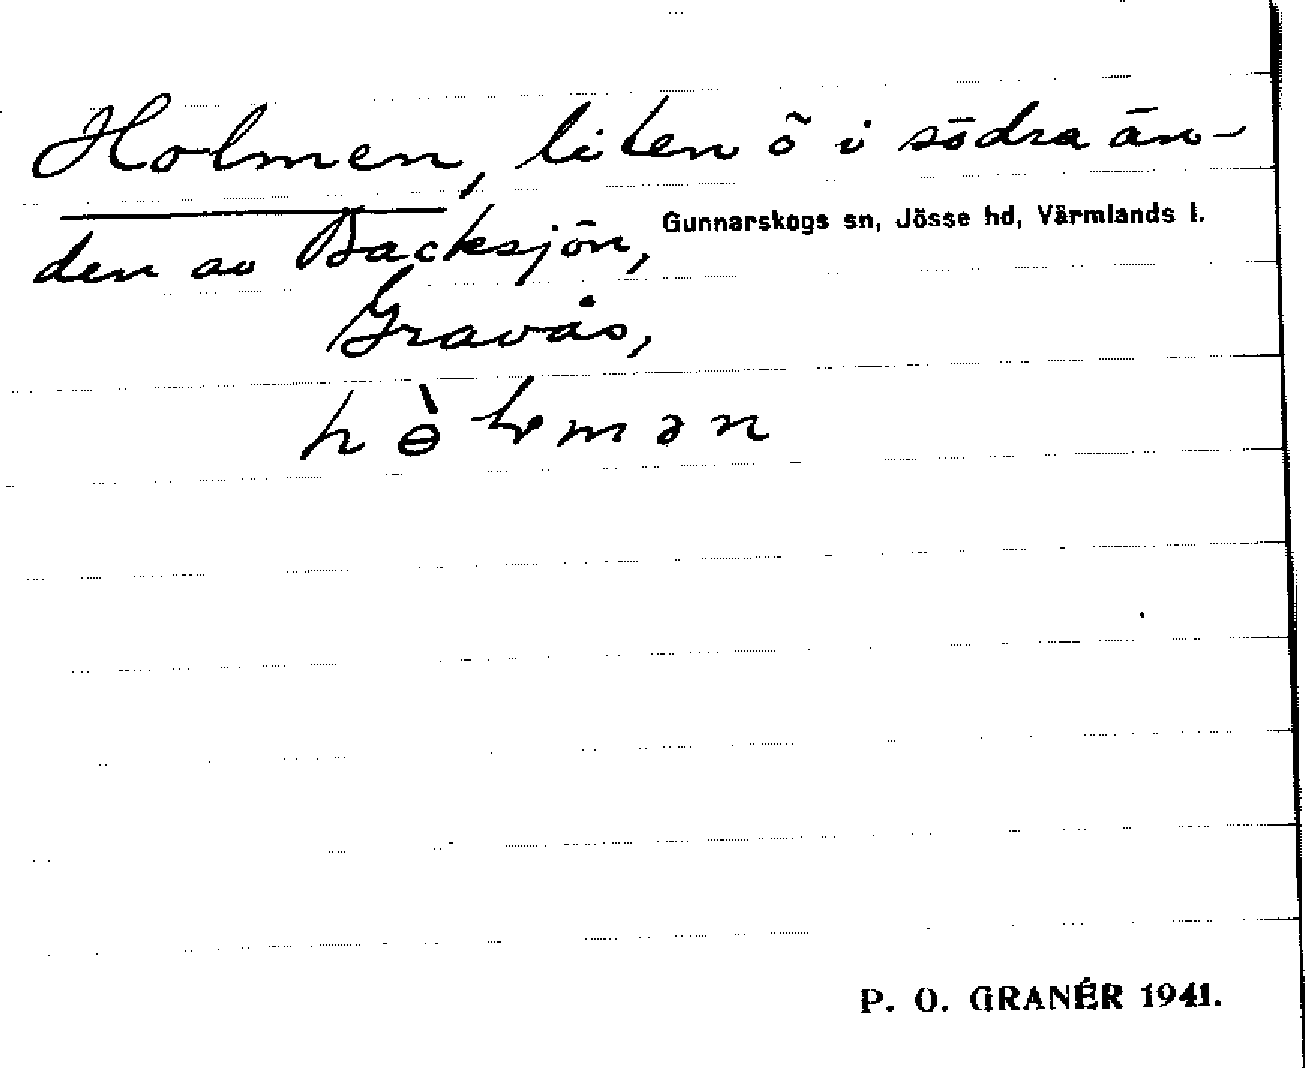 Holmen, liten ö i södra än-
Gunnarskogs sn, Jösse hd, Värmlands l.
den av Backsjön,
Gravås,
P. O. GRANÉR 1941.